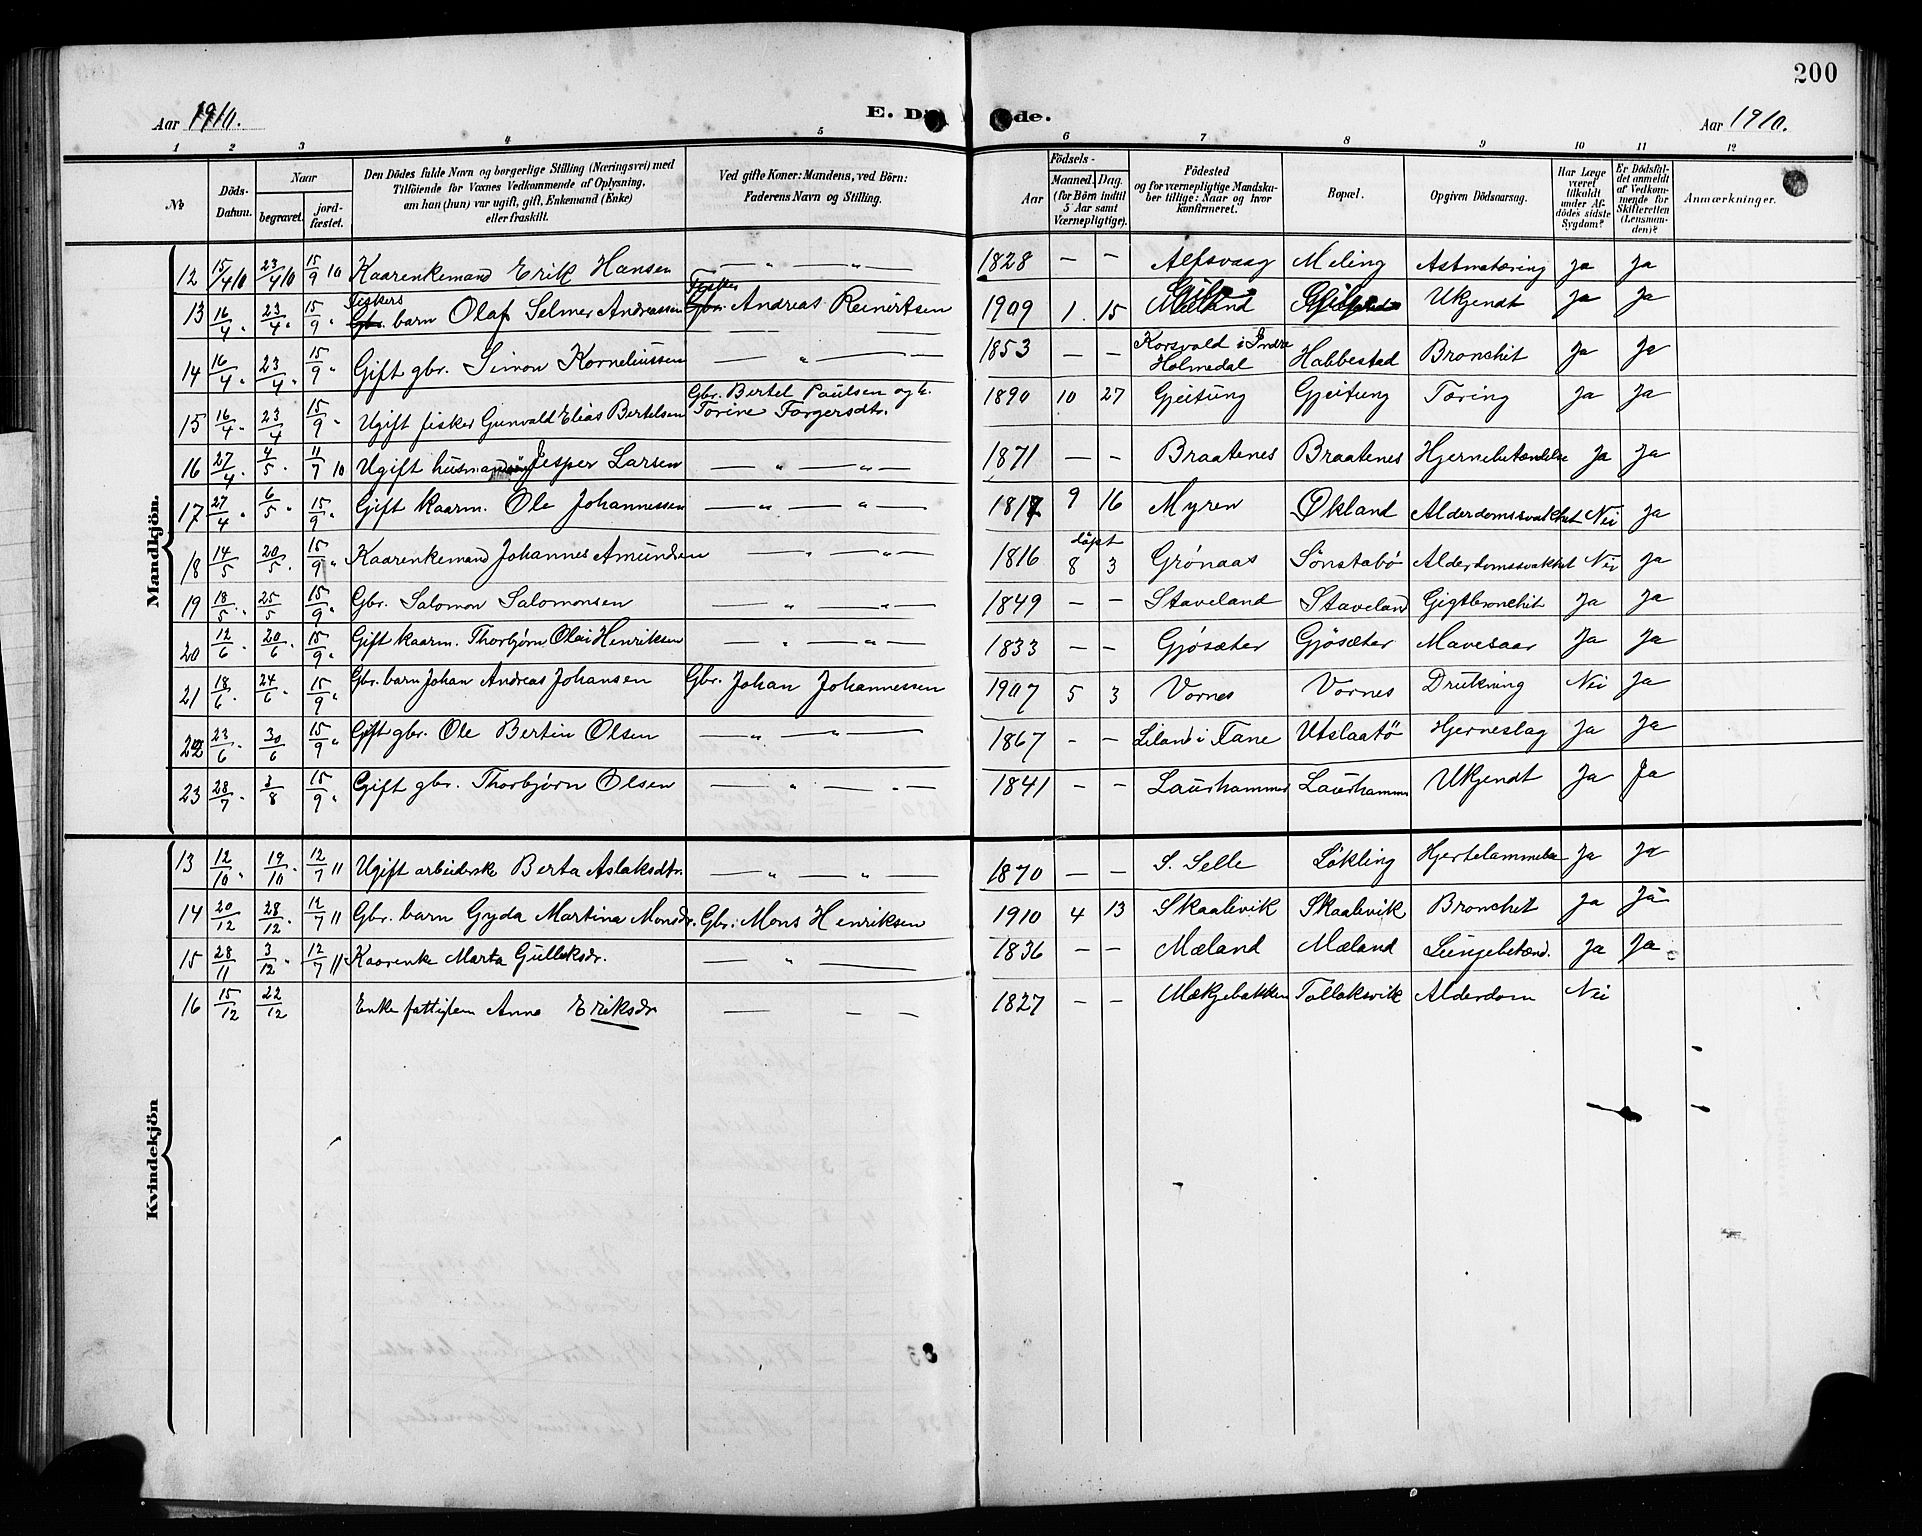 200
Aar 1910.
E. D de.
Aar 1910.
1 2 3 4 5 6 7 8 9 10 11 12
№ Döds-Datum. Naar begravet. jord-fæstet. Den Dödes fulde Navn og borgerlige Stilling (Næringsvei) med Tilföiende for Voxnes Vedkommende af Oplysning, om han (hun) var ugift, gift, Enkemand (Enke) eller fraskilt. Ved gifte Koner: Mandens, ved Börn: Faderens Navn og Stilling. Födsels- Aar Maaned. Dag. (for Börn indtil 5 Aar samt Værnepligtige). Födested og for værnepligtige Mandskaber tillige: Naar og hvor konfirmeret. Bopæl. Opgiven Dödsaarsag. Har Læge været tilkaldt under Afdödes sidste Sygdom? Er Dödsfaldet anmeldt af Vedkommende for Skifteretten (Lensmanden)? Anmærkninger.
Mandkjön.
12 15/4 10 23/4 10 15/9 10 Kaarenkemand Erik Hansen — „ — „ — 1828 — — Alfsvaag Meling Astmatæring Ja Ja
13 16/4 „ 23/4 „ 15/9 „ Fiskers Gbr. barn Olaf Selmer Andreassen Fisker Gbr. Andreas Reinertsen 1909 1. 15 Ukjendt Ja Ja
14 16/4 „ 23/4 „ 15/9 „ Gift gbr. Simon Korneliussen — „ — — 1853 — — Korsvold i Indre Holmedal Habbestad Bronchit Ja Ja
15 16/4 „ 23/4 15/9 „ Ugift fisker Gunvald Elias Bertelsen Gbr. Bertel Paulsen og h. Torine Torgersdtr. 1890 10 27 Gjeitung Gjeitung Tæring Ja Ja
16 27/4 „ 4/5 „ 11/7 10 Ugift husmand Jesper Larsen — „ — „ — 1871 — — Braatenes Braatenes Hjernebetændelse Ja Ja
17 27/4 „ 6/5 „ 15/9 „ Gift kaarm. Ole Johannessen — „ — „ — 1817 9 16 Myren Økland Alderdomssvakhet Nei Ja
18 14/5 20/5 „ 15/9 „ Kaarenkemand Johannes Amundsen — „ — „ — 1816 döpt 8 3 Grönaas Sönstabö Alderdomssvakhet Nei Ja
19 18/5 „ 25/5 15/9 „ Gbr. Salomon Salomonsen — „ — „ — 1849 — — Staveland Staveland Gigtbronchit Ja Ja
20 12/6 „ 20/6 „ 15/9 „ Gift kaarm. Thorbjørn Olai Henriksen — „ — „ — 1833 — — Gjösæter Gjösæter Mavesaar Ja Ja
21 18/6 „ 24/6 „ 15/9 „ Gbr. barn Johan Andreas Johansen Gbr. Johan Johannessen 1907 5 3 Vornes Vornes Drukning Nei Ja
22 23/6 „ 30/6 15/9 „ Gift gbr. Ole Bertin Olsen — „ — „ — 1867 — — Liland i Fane Utslaatö Hjerneslag Ja Ja
23 28/7 „ 3/8 15/9 „ Gift gbr. Thorbjørn Olsen — „ — „ — 1841 — — Laurhammer Laurhammer Ukjendt Ja Ja
Kvindekjön
13 12/10 „ 19/10 „ 12/7 11 Ugift arbeiderske Berta Aslaksdtr. — „ — „ — 1870 — — S. Selle Lökling Hjertelammelse Ja Ja
14 20/12 28/12 „ 12/7 11 Gbr. barn Gyda Martina Monsdr. Gbr: Mons Henriksen 1910 4 13 Skaalevik Skaalevik Bronchit Ja Ja
15 28/11 3/12 „ 12/7 11 Kaarenke Marta Gulleksdr. — „ — 1836 — — Mæland Mæland Lungebetænd. Ja Ja
16 15/12 22/12 Enke fattiglem Anna Eriksdr — — — 1827 — — Mækjebakken Tollaksvik Alderdom Nei